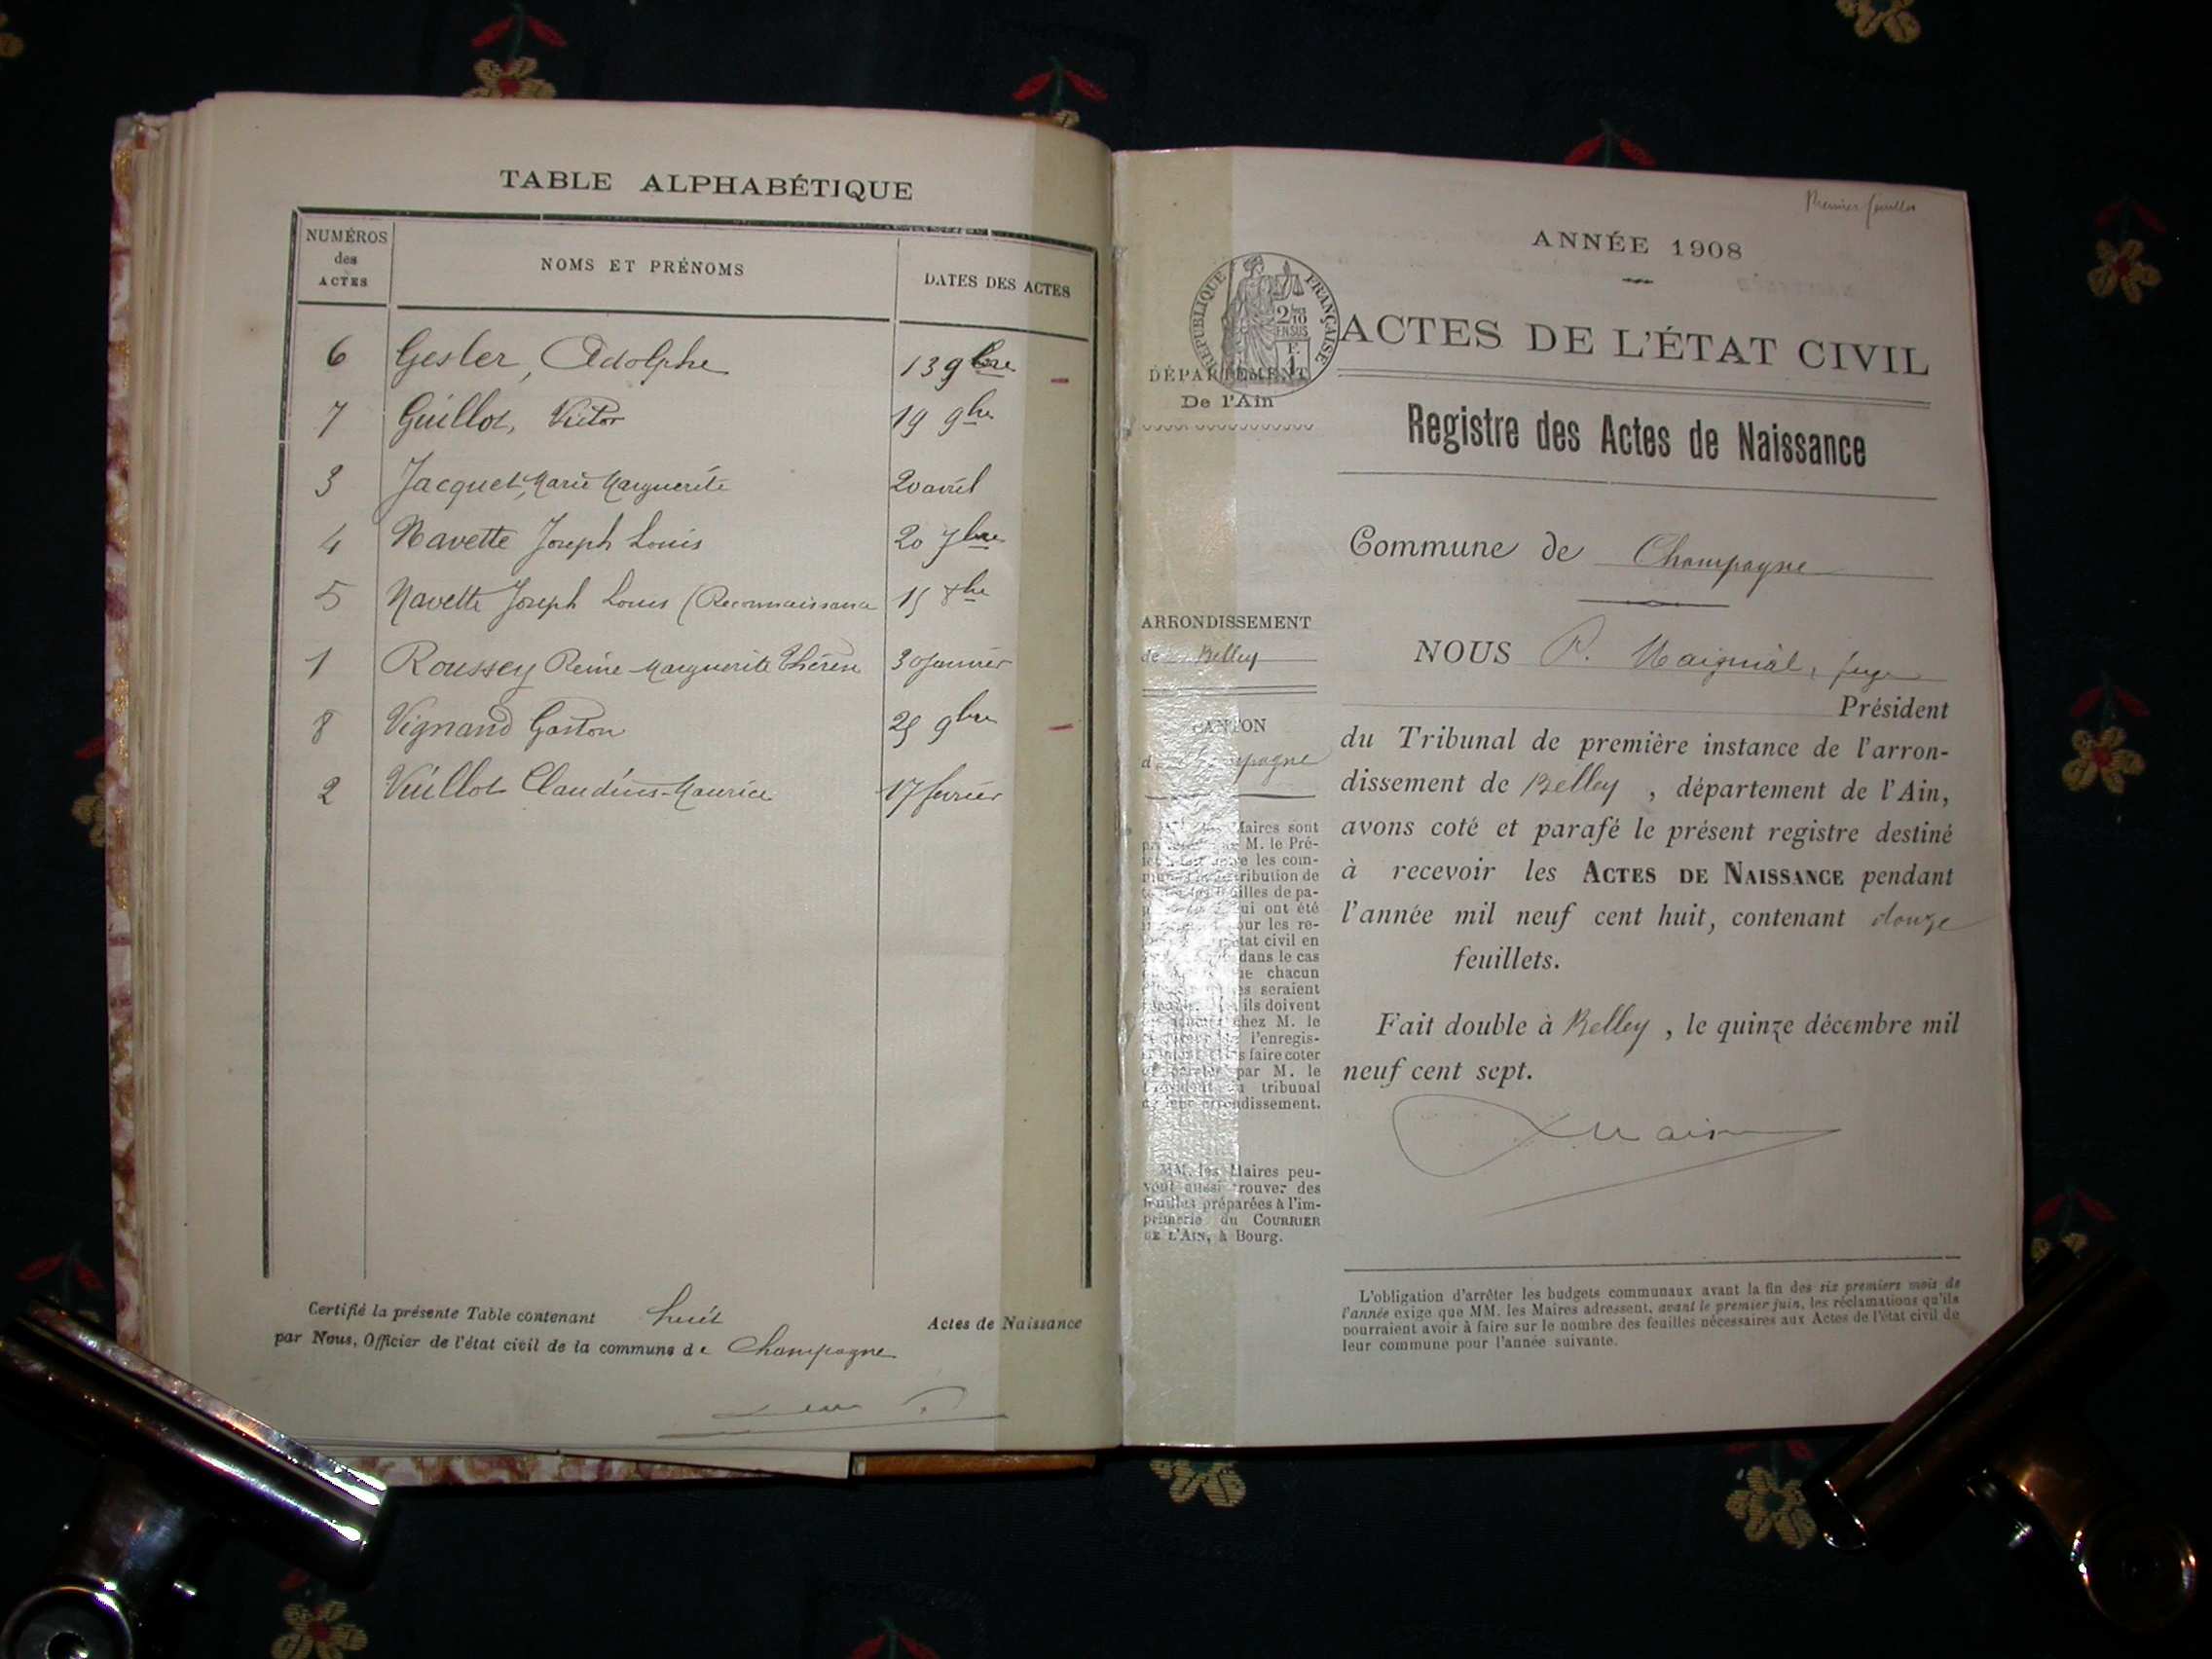 TABLE ALPHABÉTIQUE
NUMÉROS des ACTES
NOMS ET PRÉNOMS
DATES DES ACTES
6 Gesler, Adolphe 13 9bre
7 Guillot, Victor 19 9bre
3 Jacquet, Marie Marguerite 20 avril
4 Navette Joseph Louis 20 7bre
5 Navette Joseph Louis (Reconnaissance 15 8bre
1 Roussey Reine Marguerite Thérèse 30 janvier
8 Vignand Gaston 25 9bre
2 Vuillot Claudius-Maurice 17 février
Certifié la présente Table contenant huit Actes de Naissance
par Nous, Officier de l'état civil de la commune de Champagne
Premier feuillet
ANNÉE 1908
RÉPUBLIQUE FRANÇAISE
2/10
EN SUS
F. 1
ACTES DE L'ÉTAT CIVIL
DÉPARTEMENT
De l'Ain
Registre des Actes de Naissance
Commune de Champagne
ARRONDISSEMENT
de Belley
NOUS P. juge
Président
CANTON
d Champagne
du Tribunal de première instance de l'arron-
dissement de Belley, département de l'Ain,
avons coté et parafé le présent registre destiné
à recevoir les ACTES DE NAISSANCE pendant
l'année mil neuf cent huit, contenant douze
feuillets.
Fait double à Belley, le quinze décembre mil
neuf cent sept.
Maires sont
M. le Pré-
les com-
de
de pa-
ui ont été
our les re-
état civil en
dans le cas
chacun
seraient
ils doivent
chez M. le
l'enregis-
faire coter
par M. le
tribunal
arrondissement.
MM. les Maires peu-
vent aussi trouver des
feuilles préparées à l'im-
primerie du COURRIER
DE L'AIN, à Bourg.
L'obligation d'arrêter les budgets communaux avant la fin des six premiers mois de
l'année exige que MM. les Maires adressent, avant le premier juin, les réclamations qu'ils
pourraient avoir à faire sur le nombre des feuilles nécessaires aux Actes de l'état civil de
leur commune pour l'année suivante.